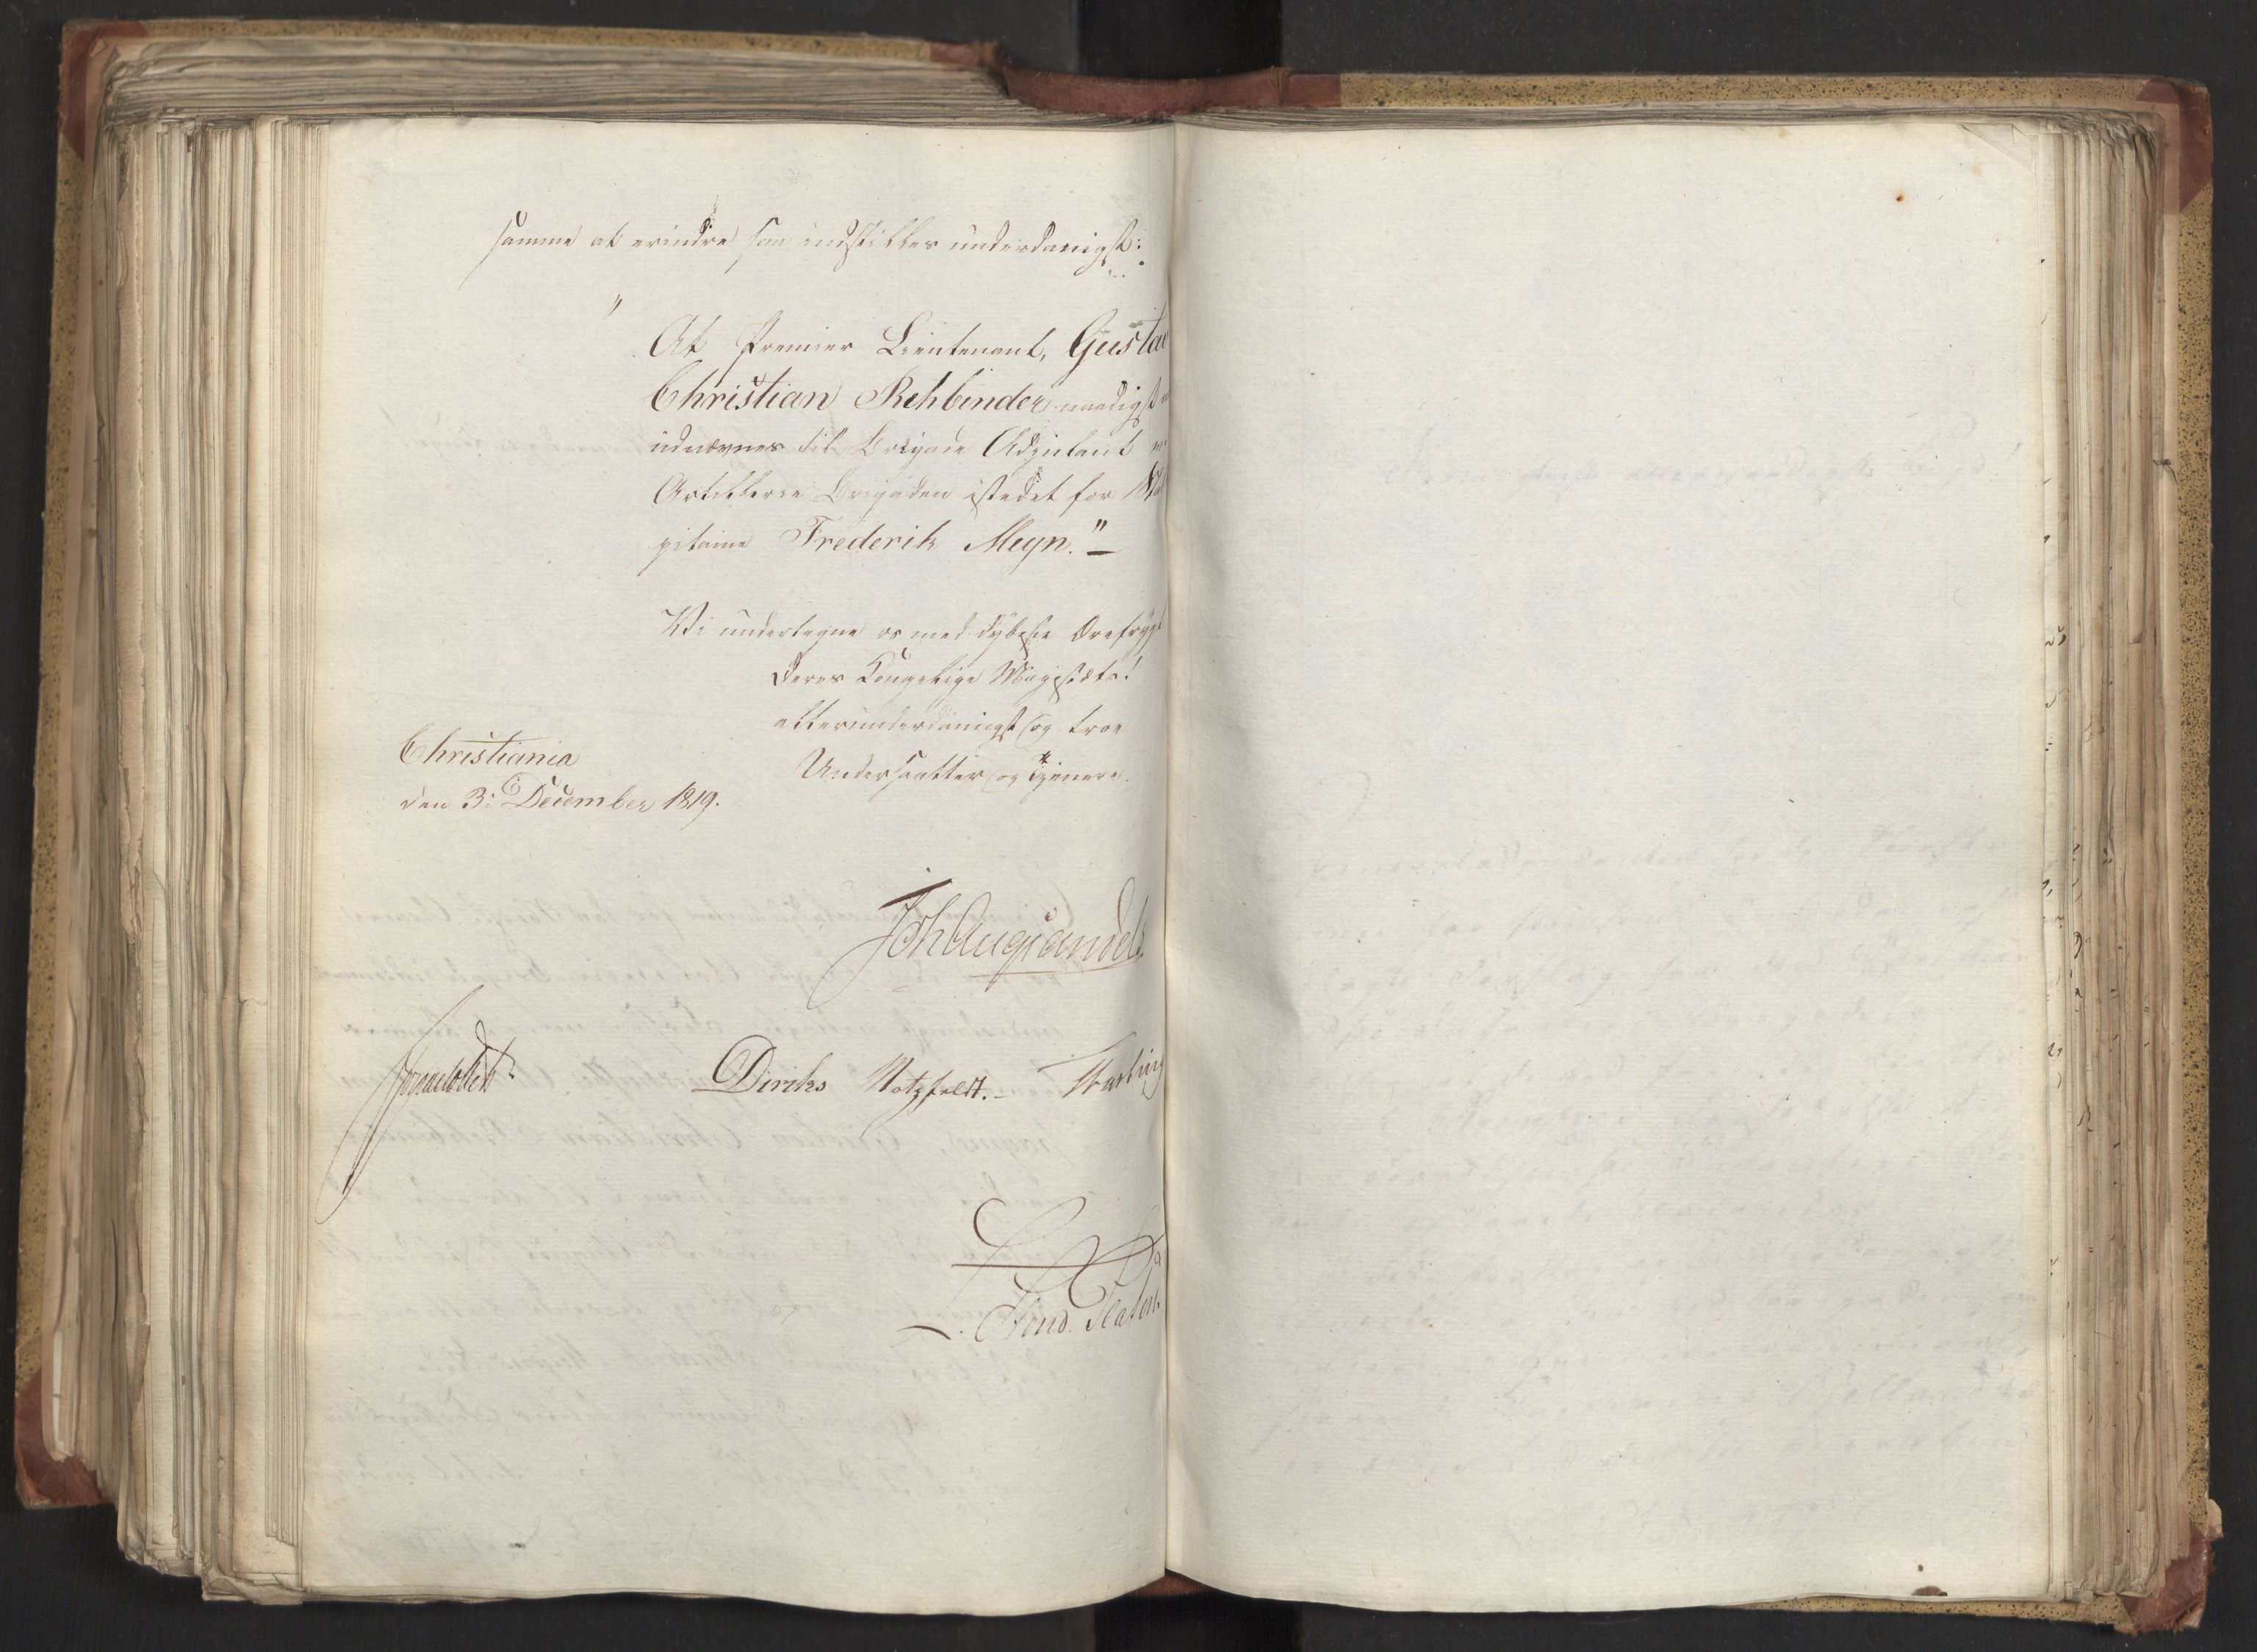 samme at erindre saa indstilles underdanigst:
"At Premier Lieutenant, Gustav
Christian Rehbinder naadigst
udnævnes til Brigade Adjutant
Artillerie Brigaden istedet for
pitaine Frederik Meyn."
Vi undertegne os med dybeste Ærefrygt
Deres Kongelige Majestæts!
allerunderdanigst og troe
Undersaatter og Tjenere.
Christiania
den 3: December 1819.
Joh Aug Sandels
Sommerfeldt
Diriks Motzfeldt. Fasting